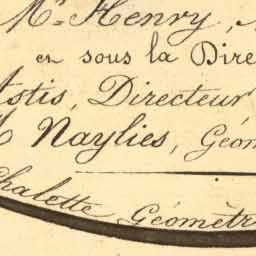 Mr. Henry,
en sous la Dire
Astis, Directeur
Naylies, Géom
Chalette Géomètr